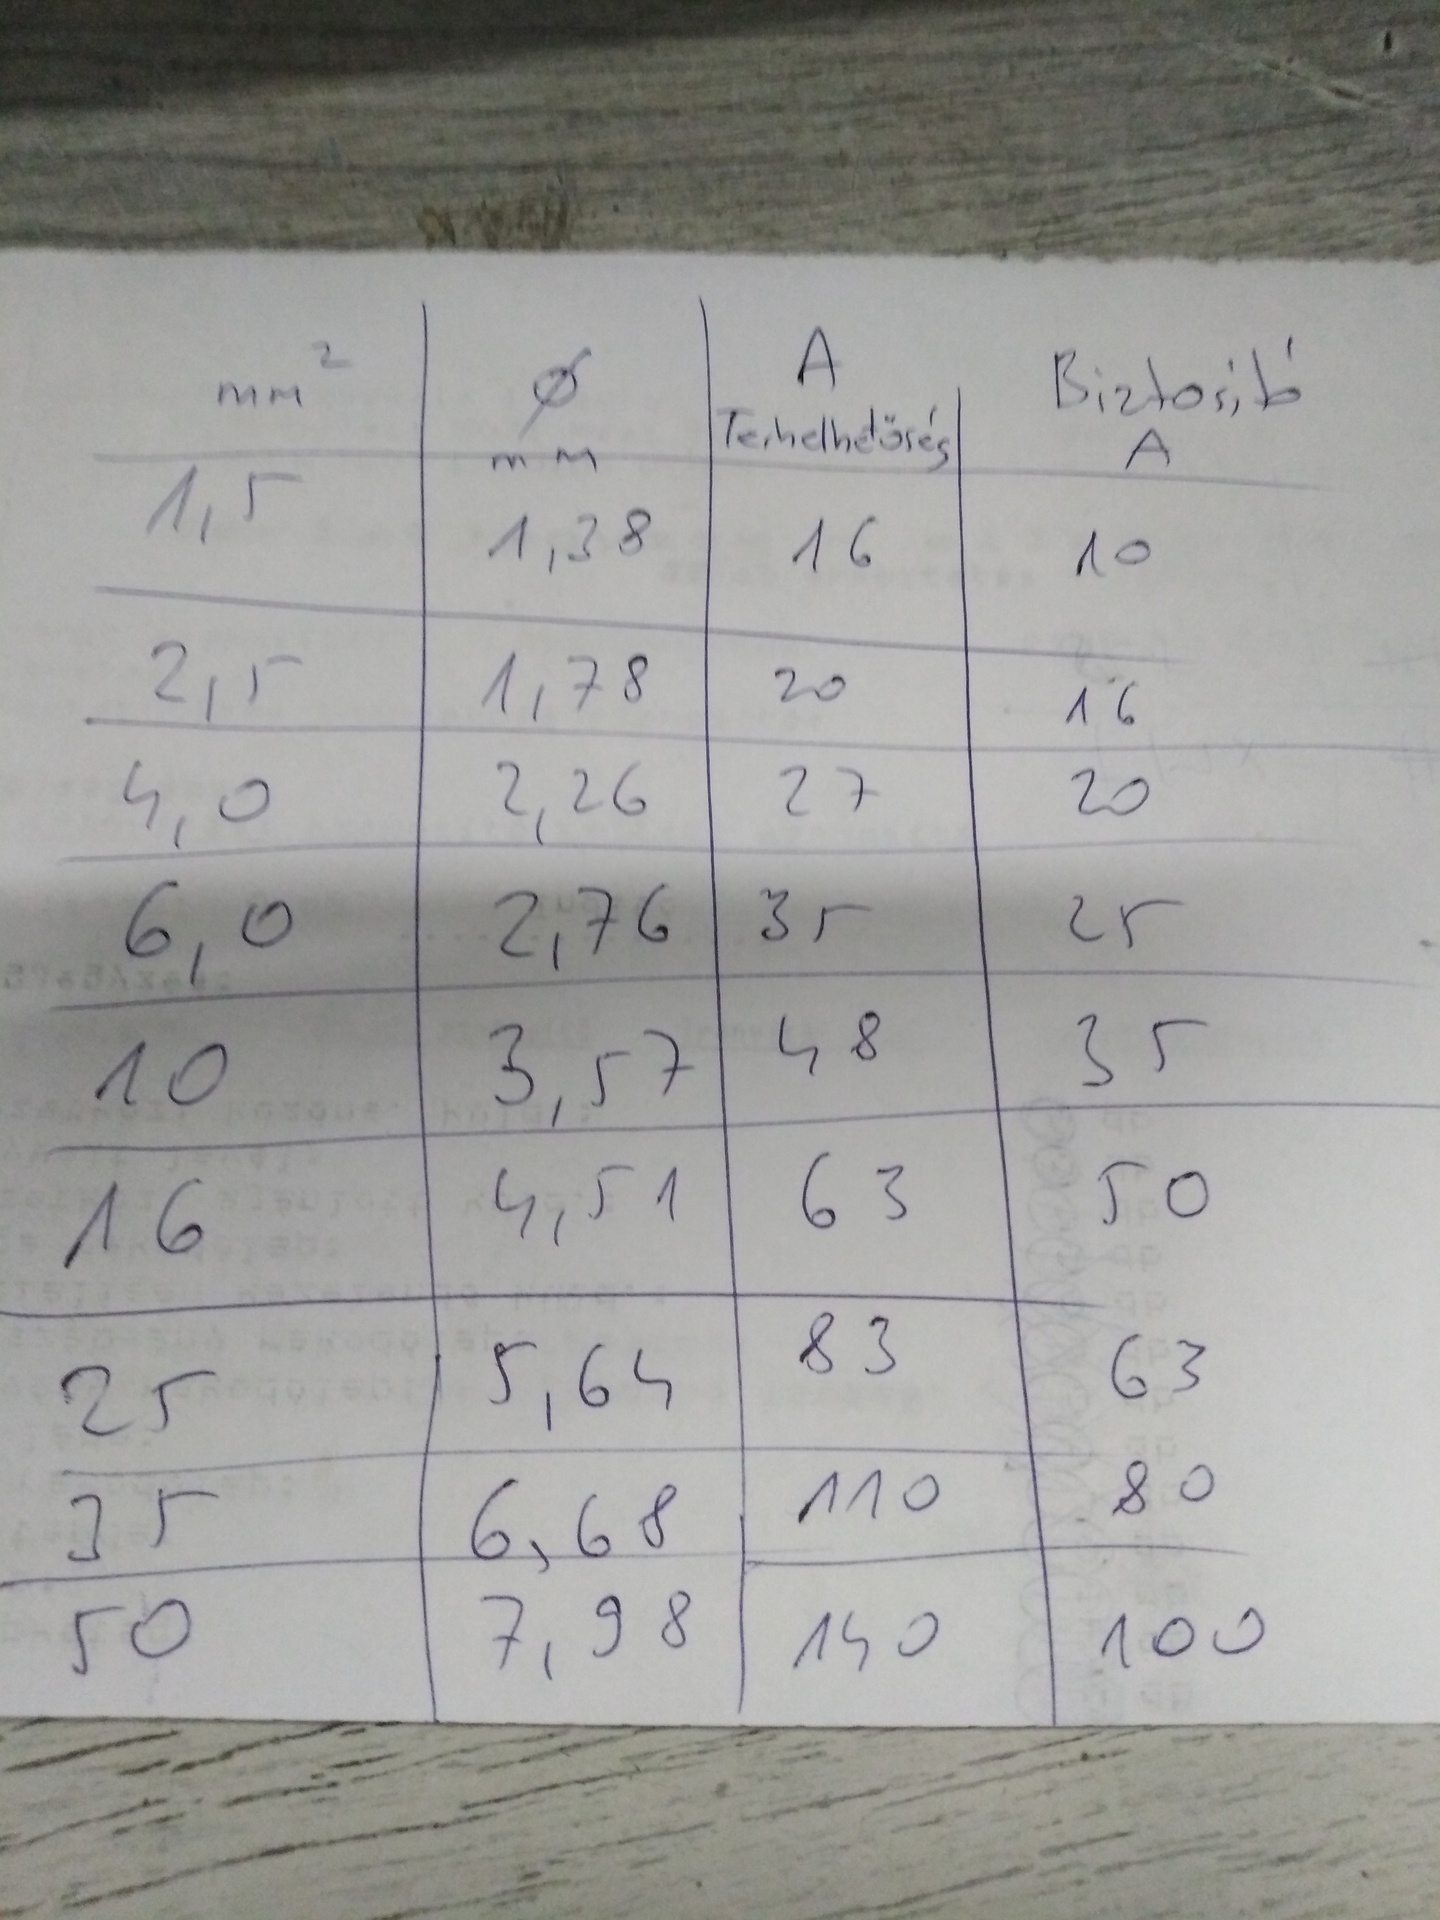 mm² Ø mm A Terhelhetőség Biztosító A
1,5 1,38 16 10
2,5 1,78 20 16
4,0 2,26 27 20
6,0 2,76 35 25
10 3,57 48 35
16 4,51 63 50
25 5,64 83 63
35 6,68 110 80
50 7,98 140 100